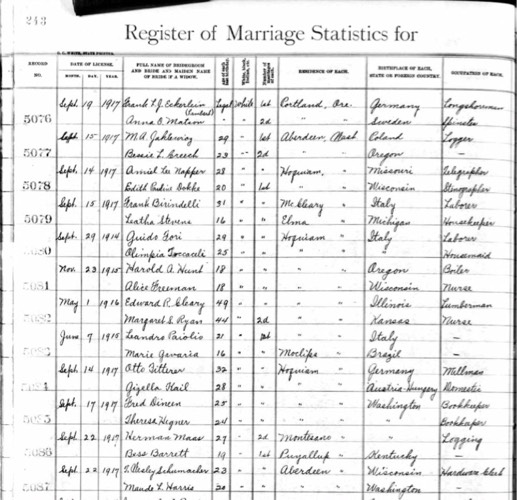 243
Register of Marriage Statistics for
RECORD NO. DATE OF LICENSE. MONTH. DAY. YEAR. FULL NAME OF BRIDEGROOM AND BRIDE AND MAIDEN NAME OF BRIDE IF A WIDOW. RESIDENCE OF EACH. BIRTHPLACE OF EACH, STATE OR FOREIGN COUNTRY. OCCUPATION OF EACH.
Sept. 19 1917 Frank L. J. Eckerlein Legal White 1st Portland, Ore. Germany Longshoreman
5076 Anna O. Matson " " 2d " " Sweden Spinster
Sept. 15 1917 M. A. 29 " 1st Aberdeen, Wash Poland Logger
5077 Bessie L. Creech 23 " 2d " " Oregon
Sept. 14 1917 Amiel Lee Napper 28 " " Hoquiam, " Missouri Telegrapher
5078 Edith Dokke 20 " 1st " " Wisconsin Stenographer
Sept. 15 1917 Frank Birindelli 31 " " McCleary " Italy Laborer
5079 Leatha Stevens 16 " " Elma " Michigan Housekeeper
Sept. 29 1914 Guido Gori 29 " " Hoquiam " Italy Laborer
5080 Olimpia 25 " " " " " Housemaid
Nov. 23 1915 Harold A. Hunt 18 " " " " Oregon Boiler
5081 Alice Freeman 18 " " " " Wisconsin Nurse
May 1 1916 Edward R. Cleary 49 " " " " Illinois Lumberman
5082 Margaret S. Ryan 44 " 2d " " Kansas Nurse
June 7 1915 Leandro Pariolio 21 " 1st " " Italy —
5083 Marie Gavaria 16 " " Moclips " Brazil —
Sept. 14 1917 Otto Fitterer 32 " " Hoquiam " Germany Millman
5084 Gizella Hail 28 " " " " Austria-Hungary Domestic
Sept. 17 1917 Fred Dineen 25 " " " " Washington Bookkeeper
5085 Theresa Hegner 24 " " " " " Bookkeeper
Sept. 22 1917 Herman Maas 27 " 2d Montesano " " Logging
5086 Bess Barrett 19 " 1st Puyallup " Kentucky —
Sept. 22 1917 Wesley Schumacher 23 " " Aberdeen " Wisconsin Hardware Clerk
5087 Maude L. Harris 20 " " " " Washington —